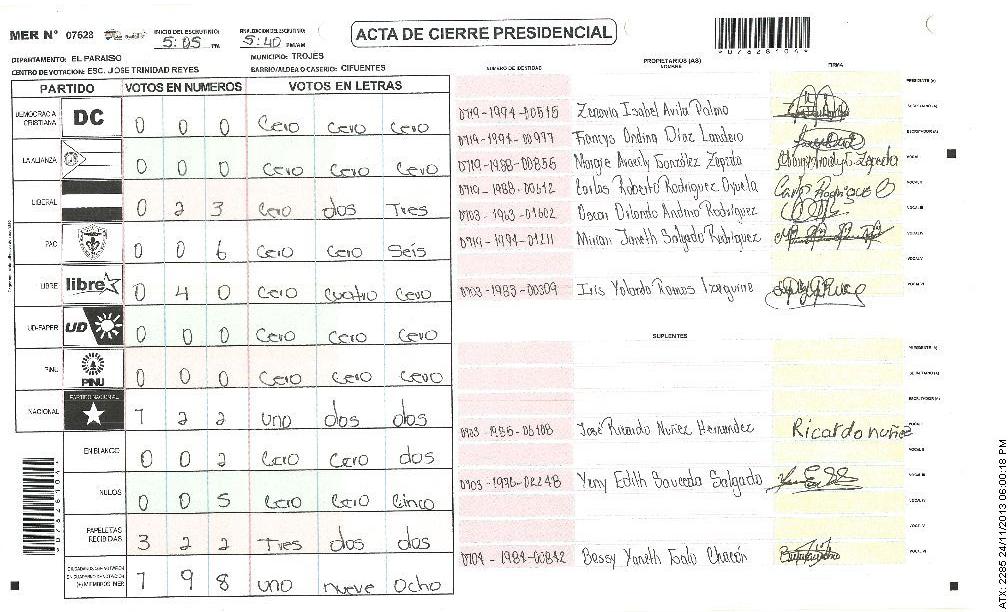 MER N° 07628
INICIO DEL ESCRUTINIO:
5:05 PM
FINALIZACION DEL ESCRUTINIO:
5:40 PM/AM
ACTA DE CIERRE PRESIDENCIAL
07628104
DEPARTAMENTO: EL PARAISO
MUNICIPIO: TROJES
CENTRO DE VOTACION: ESC. JOSE TRINIDAD REYES
BARRIO/ALDEA O CASERIO: CIFUENTES
PARTIDO VOTOS EN NUMEROS VOTOS EN LETRAS
DEMOCRACIA CRISTIANA DC 0 0 0 Cero cero cero
LA ALIANZA 0 0 0 cero cero cero
LIBERAL 0 2 3 Cero dos Tres
PAC 0 0 6 Cero cero Seis
LIBRE libre 0 4 0 Cero cuatro cero
UD-FAPER UD 0 0 0 Cero cero cero
PINU PINU 0 0 0 Cero cero cero
NACIONAL PARTIDO NACIONAL 1 2 2 uno dos dos
EN BLANCO 0 0 2 Cero cero dos
NULOS 0 0 5 Cero cero Cinco
PAPELETAS RECIBIDAS 3 2 2 Tres dos dos
1 9 8 uno nueve Ocho
NUMERO DE IDENTIDAD
PROPIETARIOS (AS)
NOMBRE
FIRMA
PRESIDENTE (A)
0719-1994-00515 Zenovia Isabel Avila Palmo
SECRETARIO (A)
0719-1991-00977 Francys Ondina Díaz Landero
ESCRUTADOR (A)
0719-1988-00856 Margie Aracely González Zepeda
VOCAL I
0719-1988-00612 Carlos Roberto Rodriguez Oyuela Carlos Rodriguez O
VOCAL II
0703-1963-01602 Oscar Orlando Andino Rodríguez
VOCAL III
0719-1991-01211 Mirian Janeth Salgado Rodríguez
VOCAL IV
VOCAL V
0703-1983-00309 Iris Yolanda Ramos Izaguirre
VOCAL VI
SUPLENTES
PRESIDENTE (A)
SECRETARIO (A)
ESCRUTADOR (A)
0703-1985-05108 José Ricardo Nuñez Hernandez Ricardo nuñez
VOCAL I
VOCAL II
0703-1986-02248 Yeny Edith Sauceda Salgado
VOCAL III
VOCAL IV
VOCAL V
0704-1984-00842 Bessy Yaneth Chacón
VOCAL VI
07628104
ATX: 2285 24/11/2013 06:00:18 PM